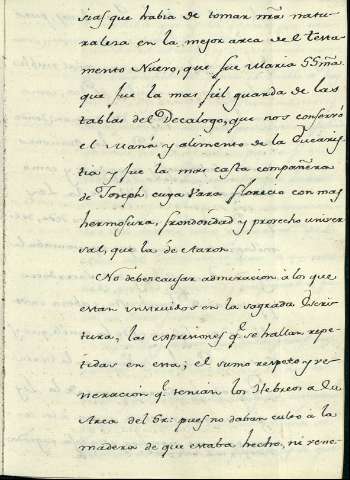 sias que habia de tomar ñra natu-
raleza en la mejor arca de el testa-
mento Nuevo, que fue Maria SSma
que fue la mas fiel guarda de las
tablas del Decalogo, que nos conservó
el Maná y alimento de la Eucaris-
tia y fue la mas casta compañera
de Joseph cuya Vara florecio con mas
hermosura, frondosidad y provecho univer
sal, que la de Aaron.
No deben causar admiracion à los que
estan instruidos en la sagrada Escri-
tura, las expresiones q.e se hallan repe-
tidas en esta; el sumo respeto y ve-
neración q.e tenian los Hebreos a la
Arca del Sr: pues no daban culto à la
madera de que estaba hecho, ni vene-